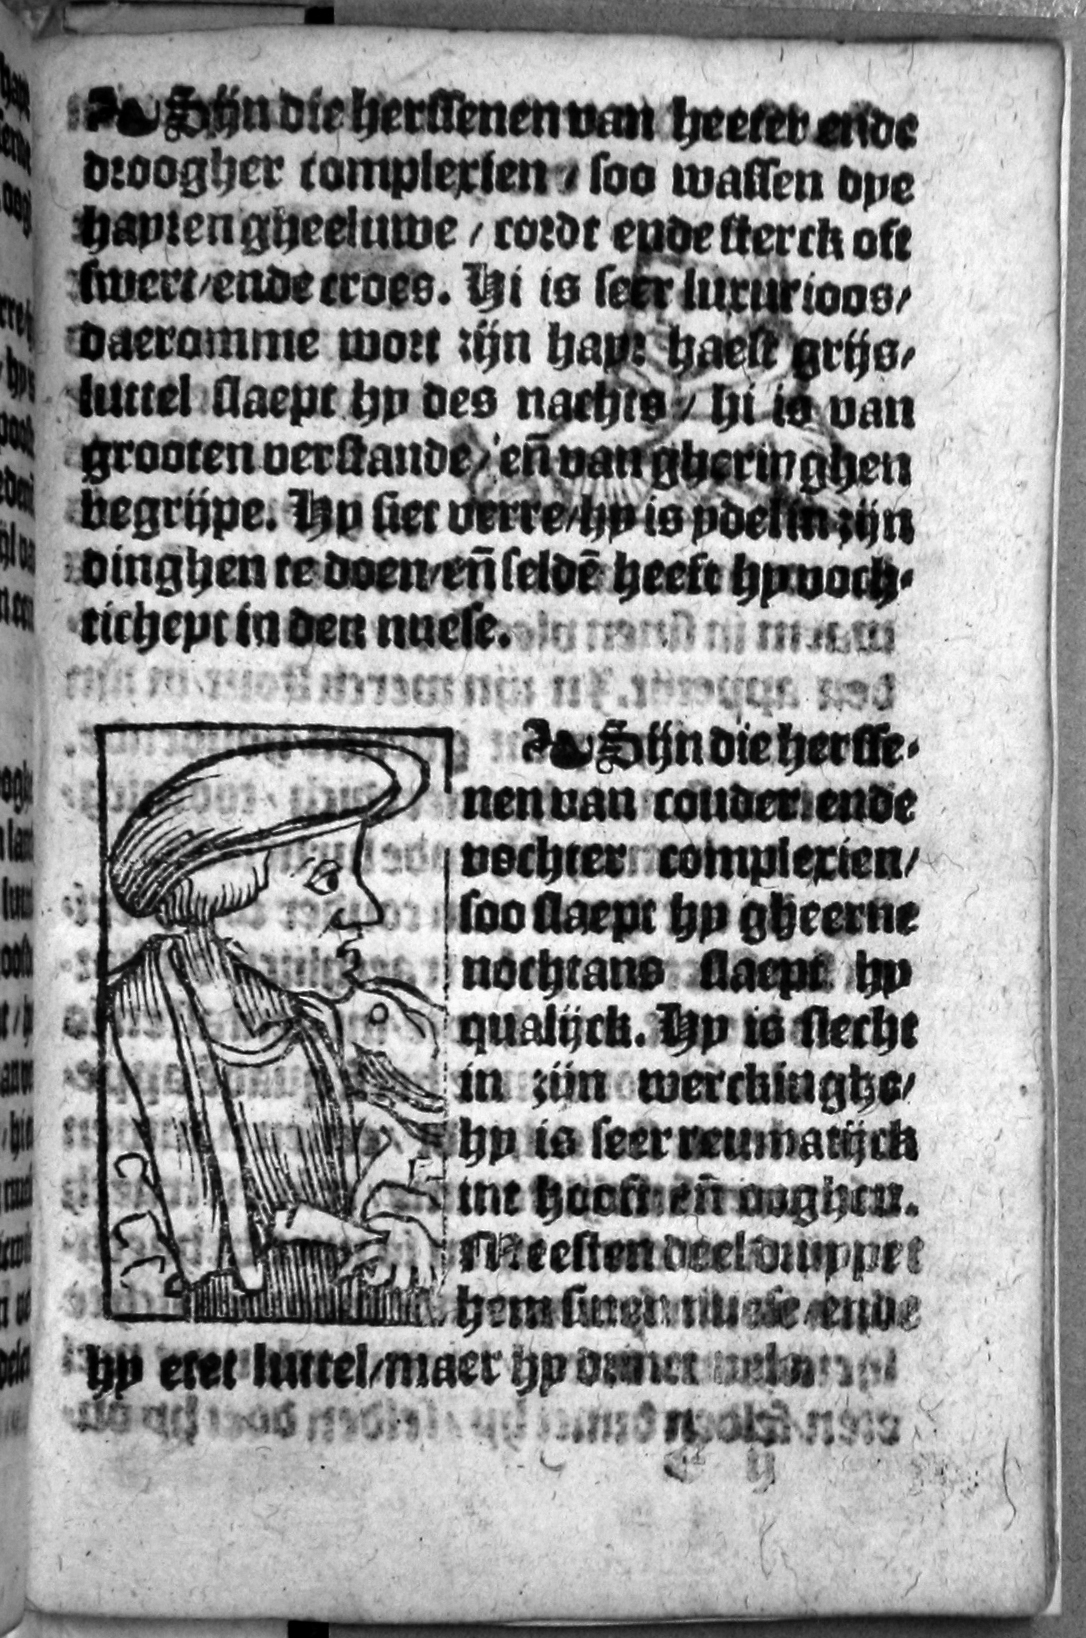 ❧ Sijn die herssenen van heeter ende
droogher complexien / soo wassen dye
hayren gheeluwe / cordt ende sterck oft
swert / ende croes. Hi is seer luxurioos /
daeromme wort zijn hayr haest grijs /
luttel slaept hy des nachts / hi is van
grooten verstande / eñ van gheringhen
begrijpe. Hy siet verre / hy is ydel in zijn
dinghen te doen / eñ seldē heeft hy voch-
ticheyt in den nuese.
❧ Sijn die hersse-
nen van couder ende
vochter complexien /
soo slaept hy gheerne
nochtans slaept hy
qualijck. Hy is slecht
in zijn werckinghe /
hy is seer reumatijck
int hooft eñ ooghen.
Meesten deel druppet
hem sinen nuese / ende
hy etet luttel / maer hy drinct